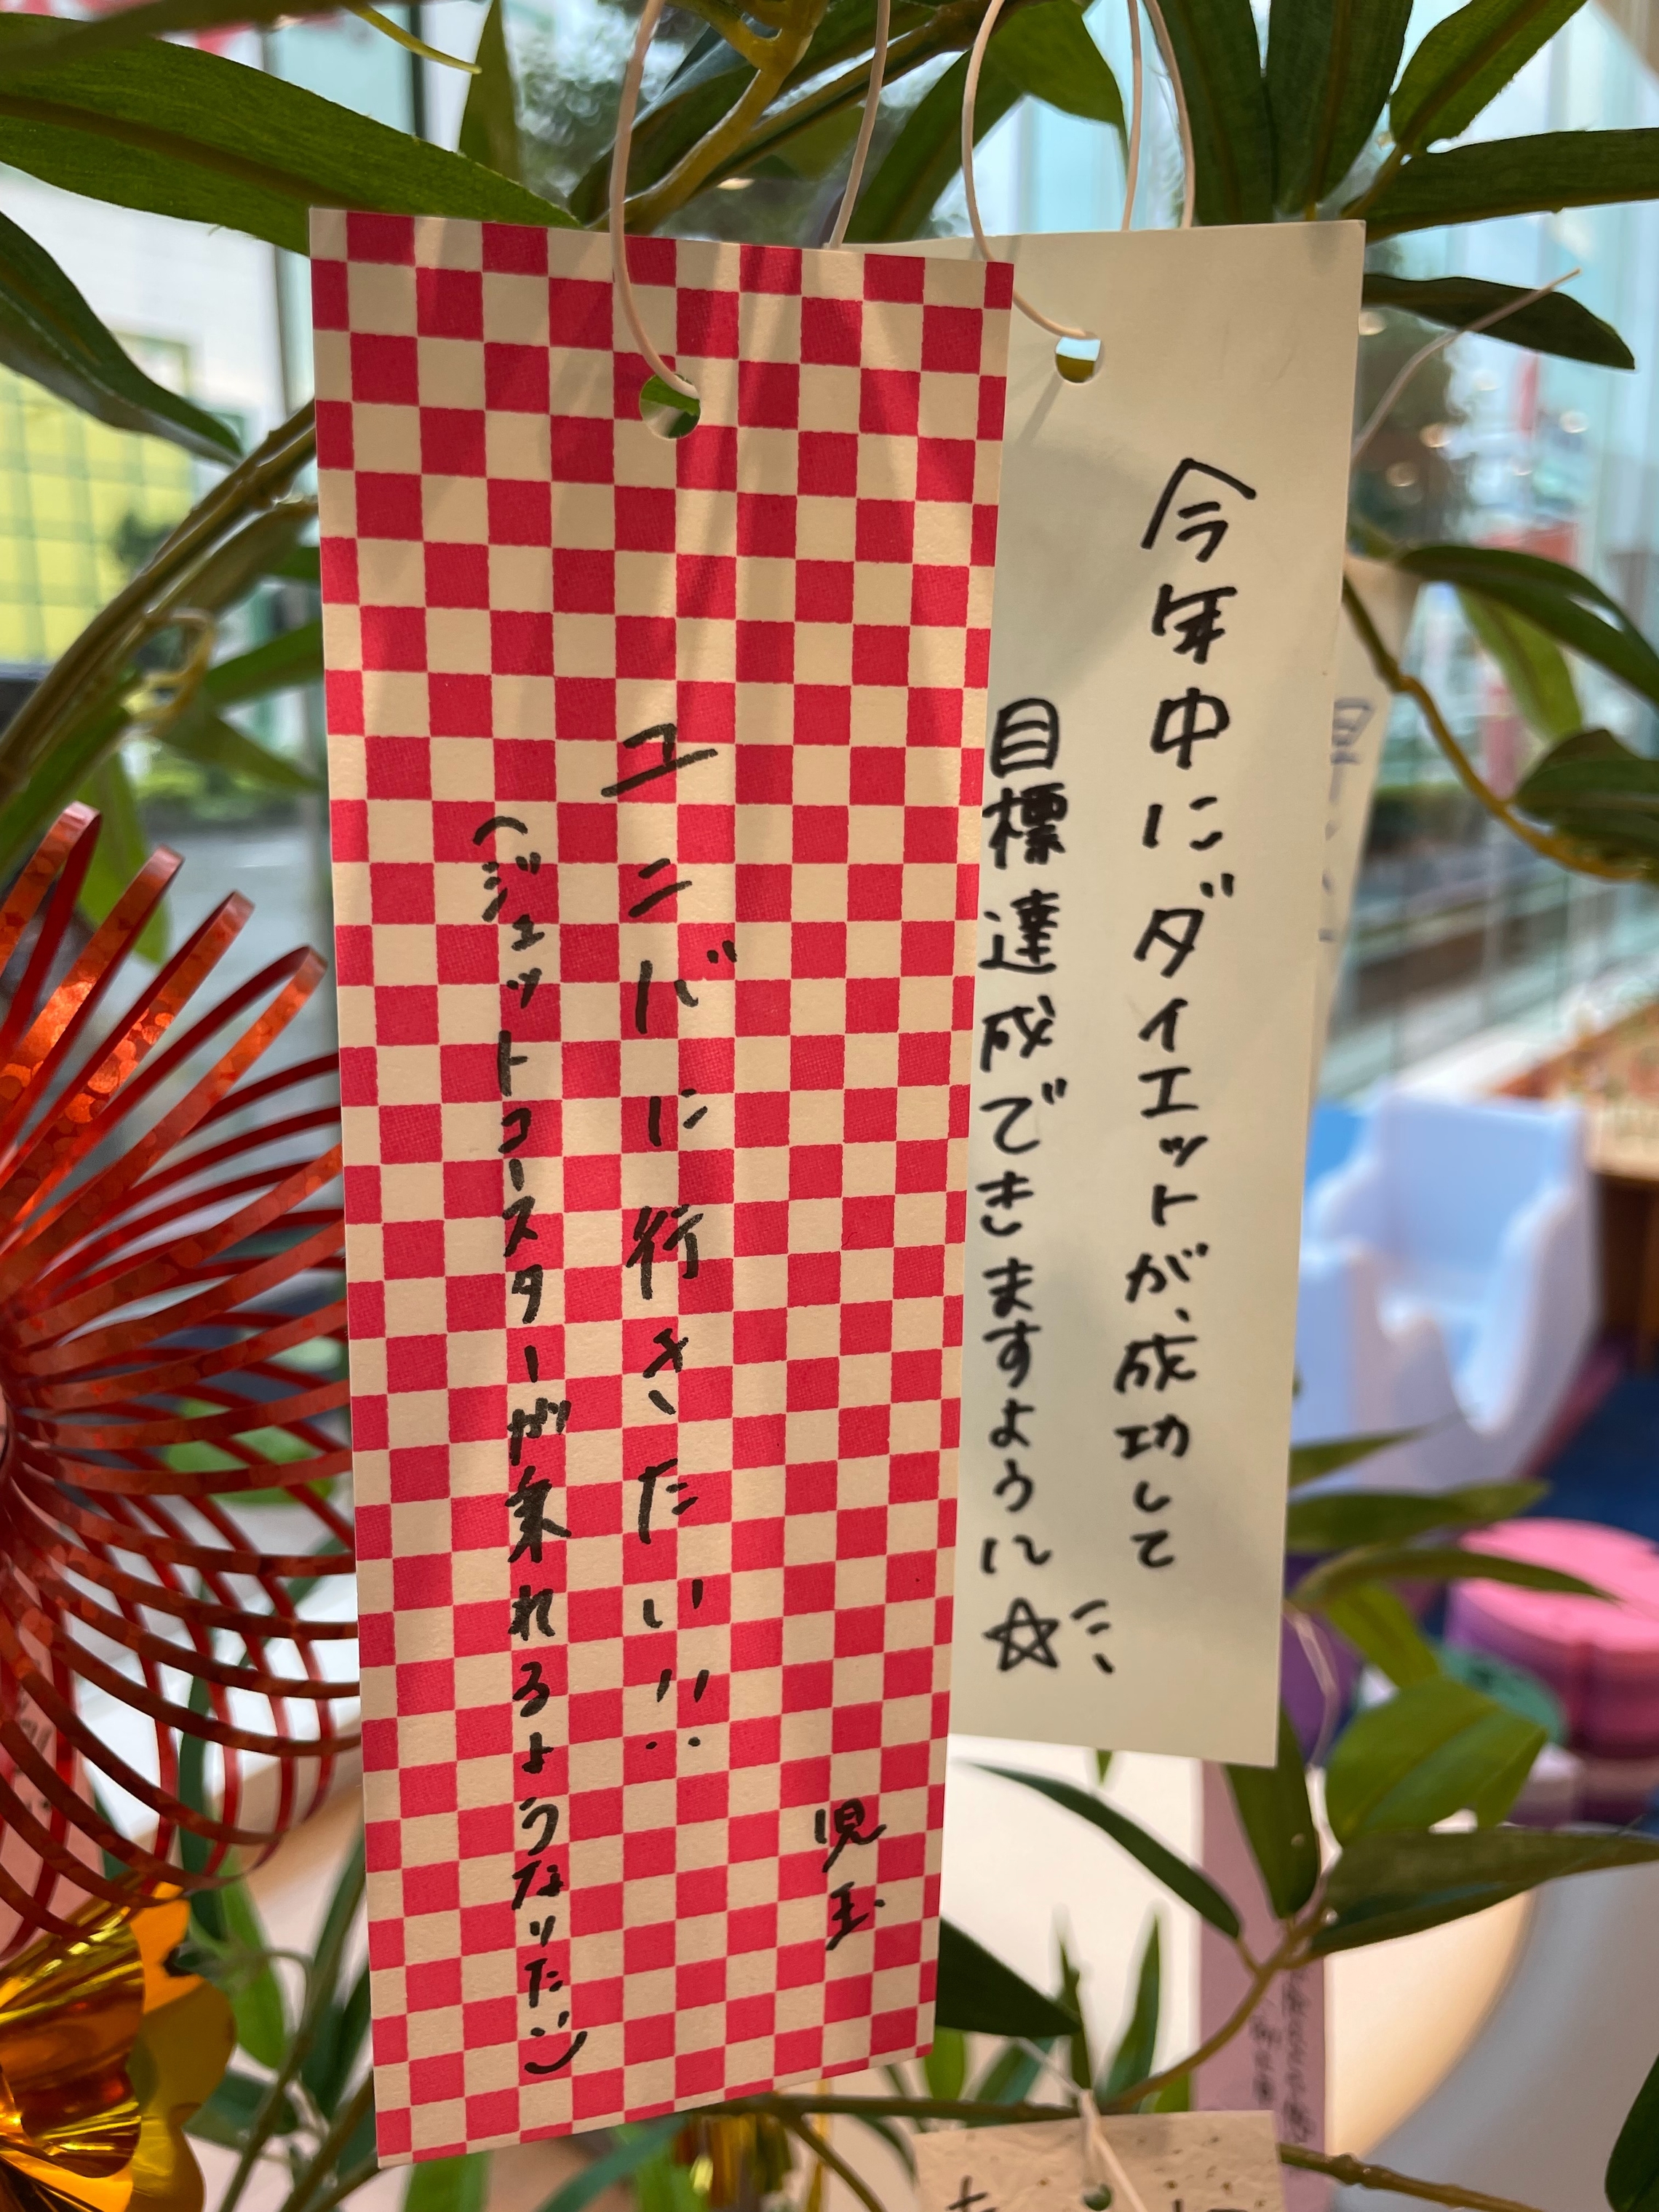 今年中にダイエットが、成功して
目標達成できますように☆
ユニバに行きたい!!
(ジェットコースターが乗れるようなりたい)
児玉